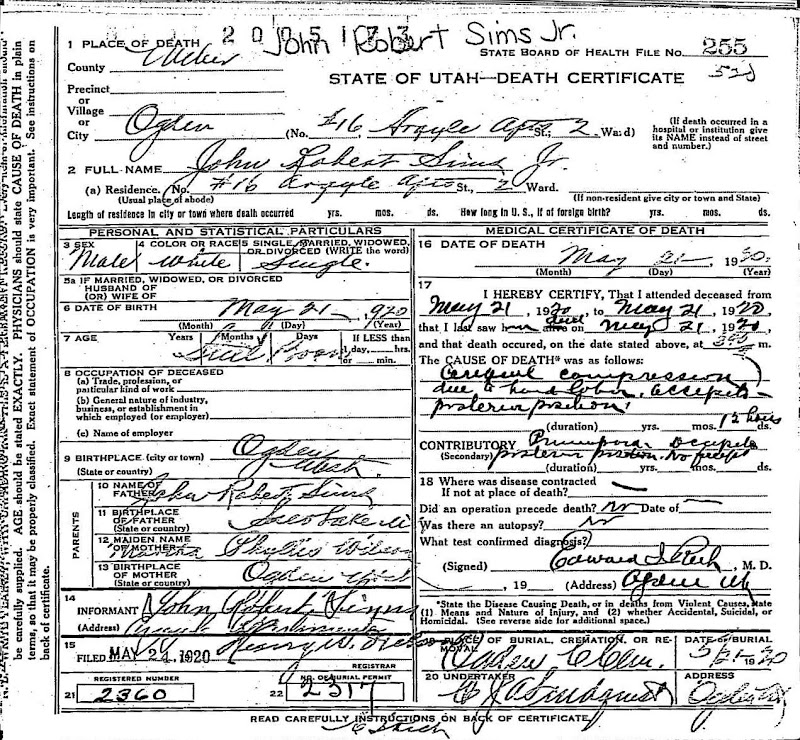 2 0 0 5 1 7 3
John Robert Sims Jr.
1 PLACE OF DEATH
STATE BOARD OF HEALTH FILE NO. 255
County Weber
STATE OF UTAH—DEATH CERTIFICATE
52d
Precinct
or
Village
or
City Ogden (No. #16 Argyle Apts St.; 2 Ward)
(If death occurred in a hospital or institution give its NAME instead of street and number.)
2 FULL NAME John Robert Sims Jr.
(a) Residence. No. #16 Argyle Apts St., 2 Ward.
(Usual place of abode) (If non-resident give city or town and State)
Length of residence in city or town where death occurred yrs. mos. ds. How long in U. S., if of foreign birth? yrs. mos. ds.
PERSONAL AND STATISTICAL PARTICULARS
3 SEX Male
4 COLOR OR RACE White
5 SINGLE, MARRIED, WIDOWED, OR DIVORCED (WRITE the word) Single.
5a IF MARRIED, WIDOWED, OR DIVORCED
HUSBAND OF
(OR) WIFE OF
6 DATE OF BIRTH May 21 - 1920
(Month) (Day) (Year)
7 AGE Years Months Days If LESS than
1 day, hrs.
or min.
Still Born
8 OCCUPATION OF DECEASED
(a) Trade, profession, or
particular kind of work
(b) General nature of industry,
business, or establishment in
which employed (or employer)
(c) Name of employer
9 BIRTHPLACE (city or town) Ogden
(State or country) Utah.
PARENTS
10 NAME OF FATHER John Robert Sims
11 BIRTHPLACE OF FATHER
(State or country)
12 MAIDEN NAME OF MOTHER Martha Phyllis Wilson
13 BIRTHPLACE OF MOTHER Ogden Utah
(State or country)
14
INFORMANT John Robert Sims
(Address)
15
FILED MAY 24 1920 Henry W.
REGISTRAR
REGISTERED NUMBER
21 2360
NO. OF BURIAL PERMIT
22 2317
MEDICAL CERTIFICATE OF DEATH
16 DATE OF DEATH May 21- 1920.
(Month) (Day) (Year)
17
I HEREBY CERTIFY, That I attended deceased from
May 21, 1920, to May 21, 1920,
that I last saw him dead alive on May 21, 1920,
and that death occured, on the date stated above, at 345 m.
The CAUSE OF DEATH* was as follows:
Cerebral compression
due to hard labor, occipito-
posterior position.
(duration) yrs. mos. ds. 12 hours
CONTRIBUTORY Primipara Occipito
(Secondary) posterior position. No
(duration) yrs. mos. ds.
18 Where was disease contracted
If not at place of death? —
Did an operation precede death? No Date of —
Was there an autopsy? No
What test confirmed diagnosis?
(Signed) Edward I. Rich, M. D.
, 19 (Address) Ogden Ut
*State the Disease Causing Death, or in deaths from Violent Causes, state
(1) Means and Nature of Injury, and (2) whether Accidental, Suicidal, or
Homicidal. (See reverse side for additional space.)
PLACE OF BURIAL, CREMATION, OR REMOVAL Ogden Cem.
DATE OF BURIAL 5/21- 1920
20 UNDERTAKER C J A Lindquist
ADDRESS Ogden
READ CAREFULLY INSTRUCTIONS ON BACK OF CERTIFICATE
be carefully supplied. AGE should be stated EXACTLY. PHYSICIANS should state CAUSE OF DEATH in plain
terms, so that it may be properly classified. Exact statement of OCCUPATION is very important. See instructions on
back of certificate.